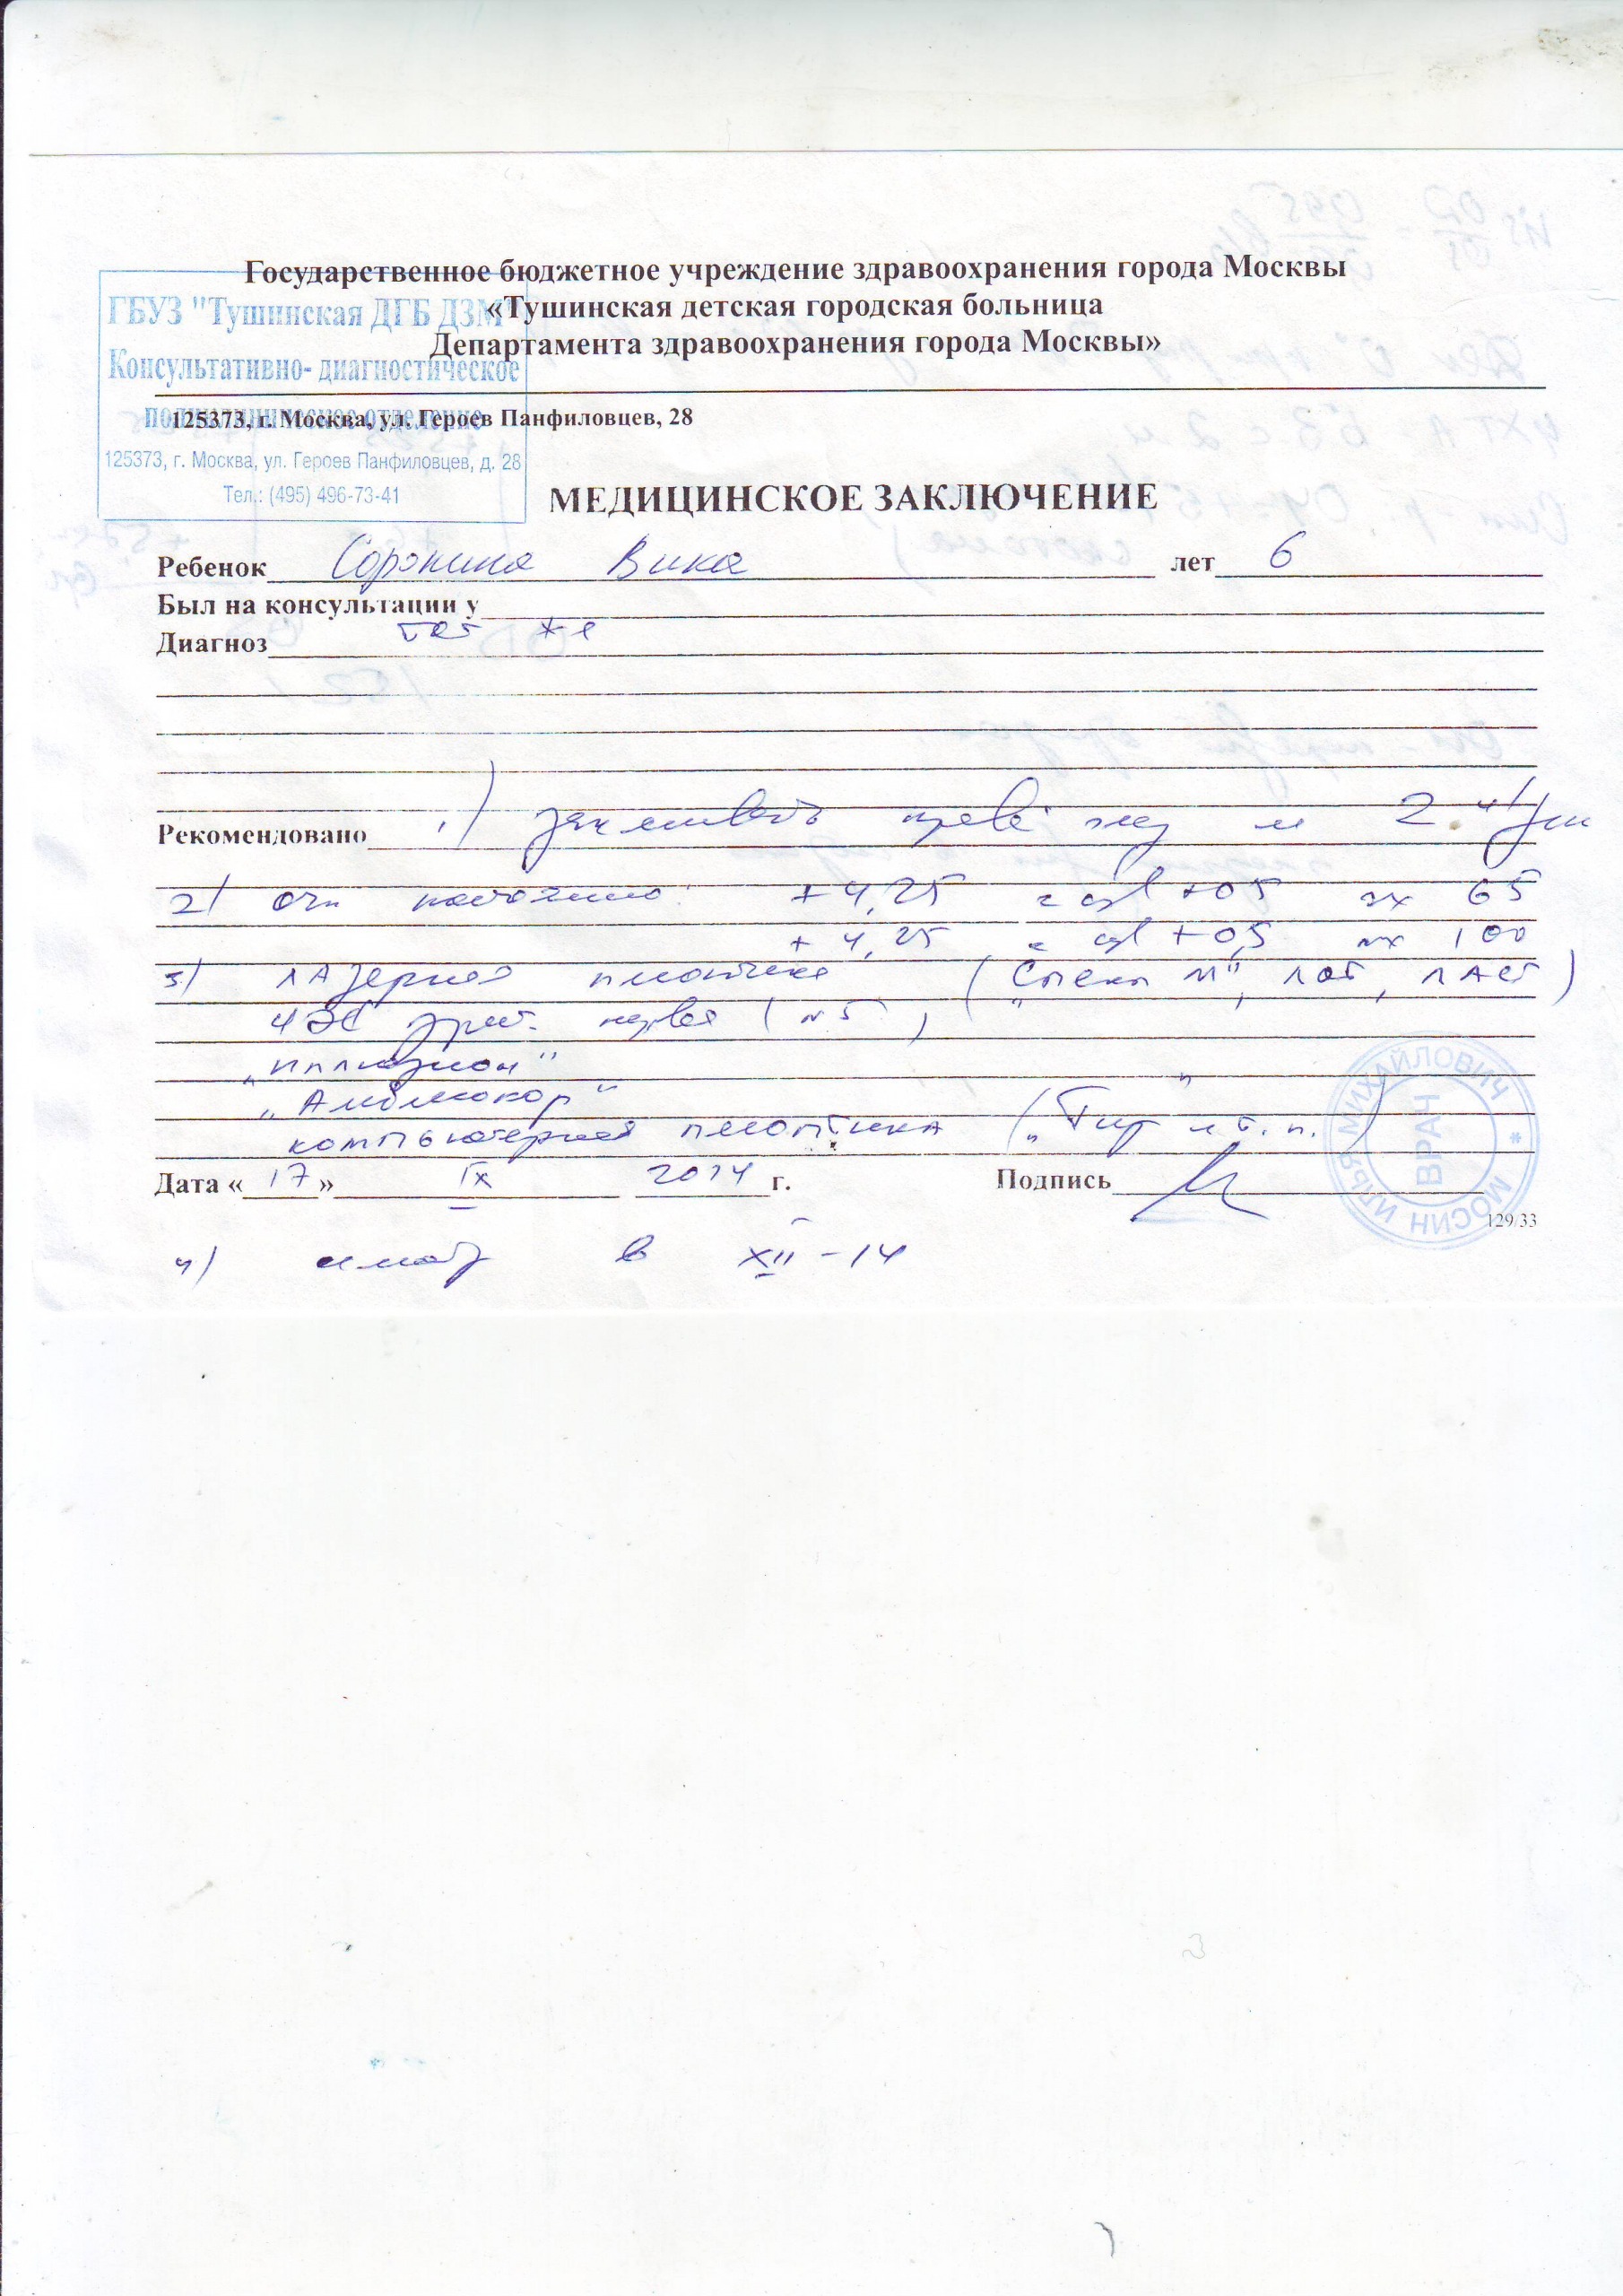 Государственное бюджетное учреждение здравоохранения города Москвы
«Тушинская детская городская больница
Департамента здравоохранения города Москвы»
ГБУЗ "Тушинская ДГБ ДЗМ"
Консультативно- диагностическое
поликлиническое отделение
125373, г. Москва, ул. Героев Панфиловцев, д. 28
Тел.: (495) 496-73-41
125373, г. Москва, ул. Героев Панфиловцев, 28
МЕДИЦИНСКОЕ ЗАКЛЮЧЕНИЕ
Ребенок Сорокина Вика лет 6
Был на консультации у
Диагноз тот же
Рекомендовано 1) заклеивать 2 ч/
2) очки постоянно: +4,25 cyl +0,5 ax 65
+4,25 cyl +0,5 ax 100
3) лазерная плеоптика ( "Спекл М", ЛОТ, ЛАСТ )
ЧЭС зрит. нерва (N5),
„Иллюзион"
„Амблиокор"
компьютерная плеоптика („Тир" и т. п. )
Дата « 17 » IX 2014 г. Подпись
129/33
МОСИН ИЛЬЯ МИХАЙЛОВИЧ *
ВРАЧ
4) в XII -14